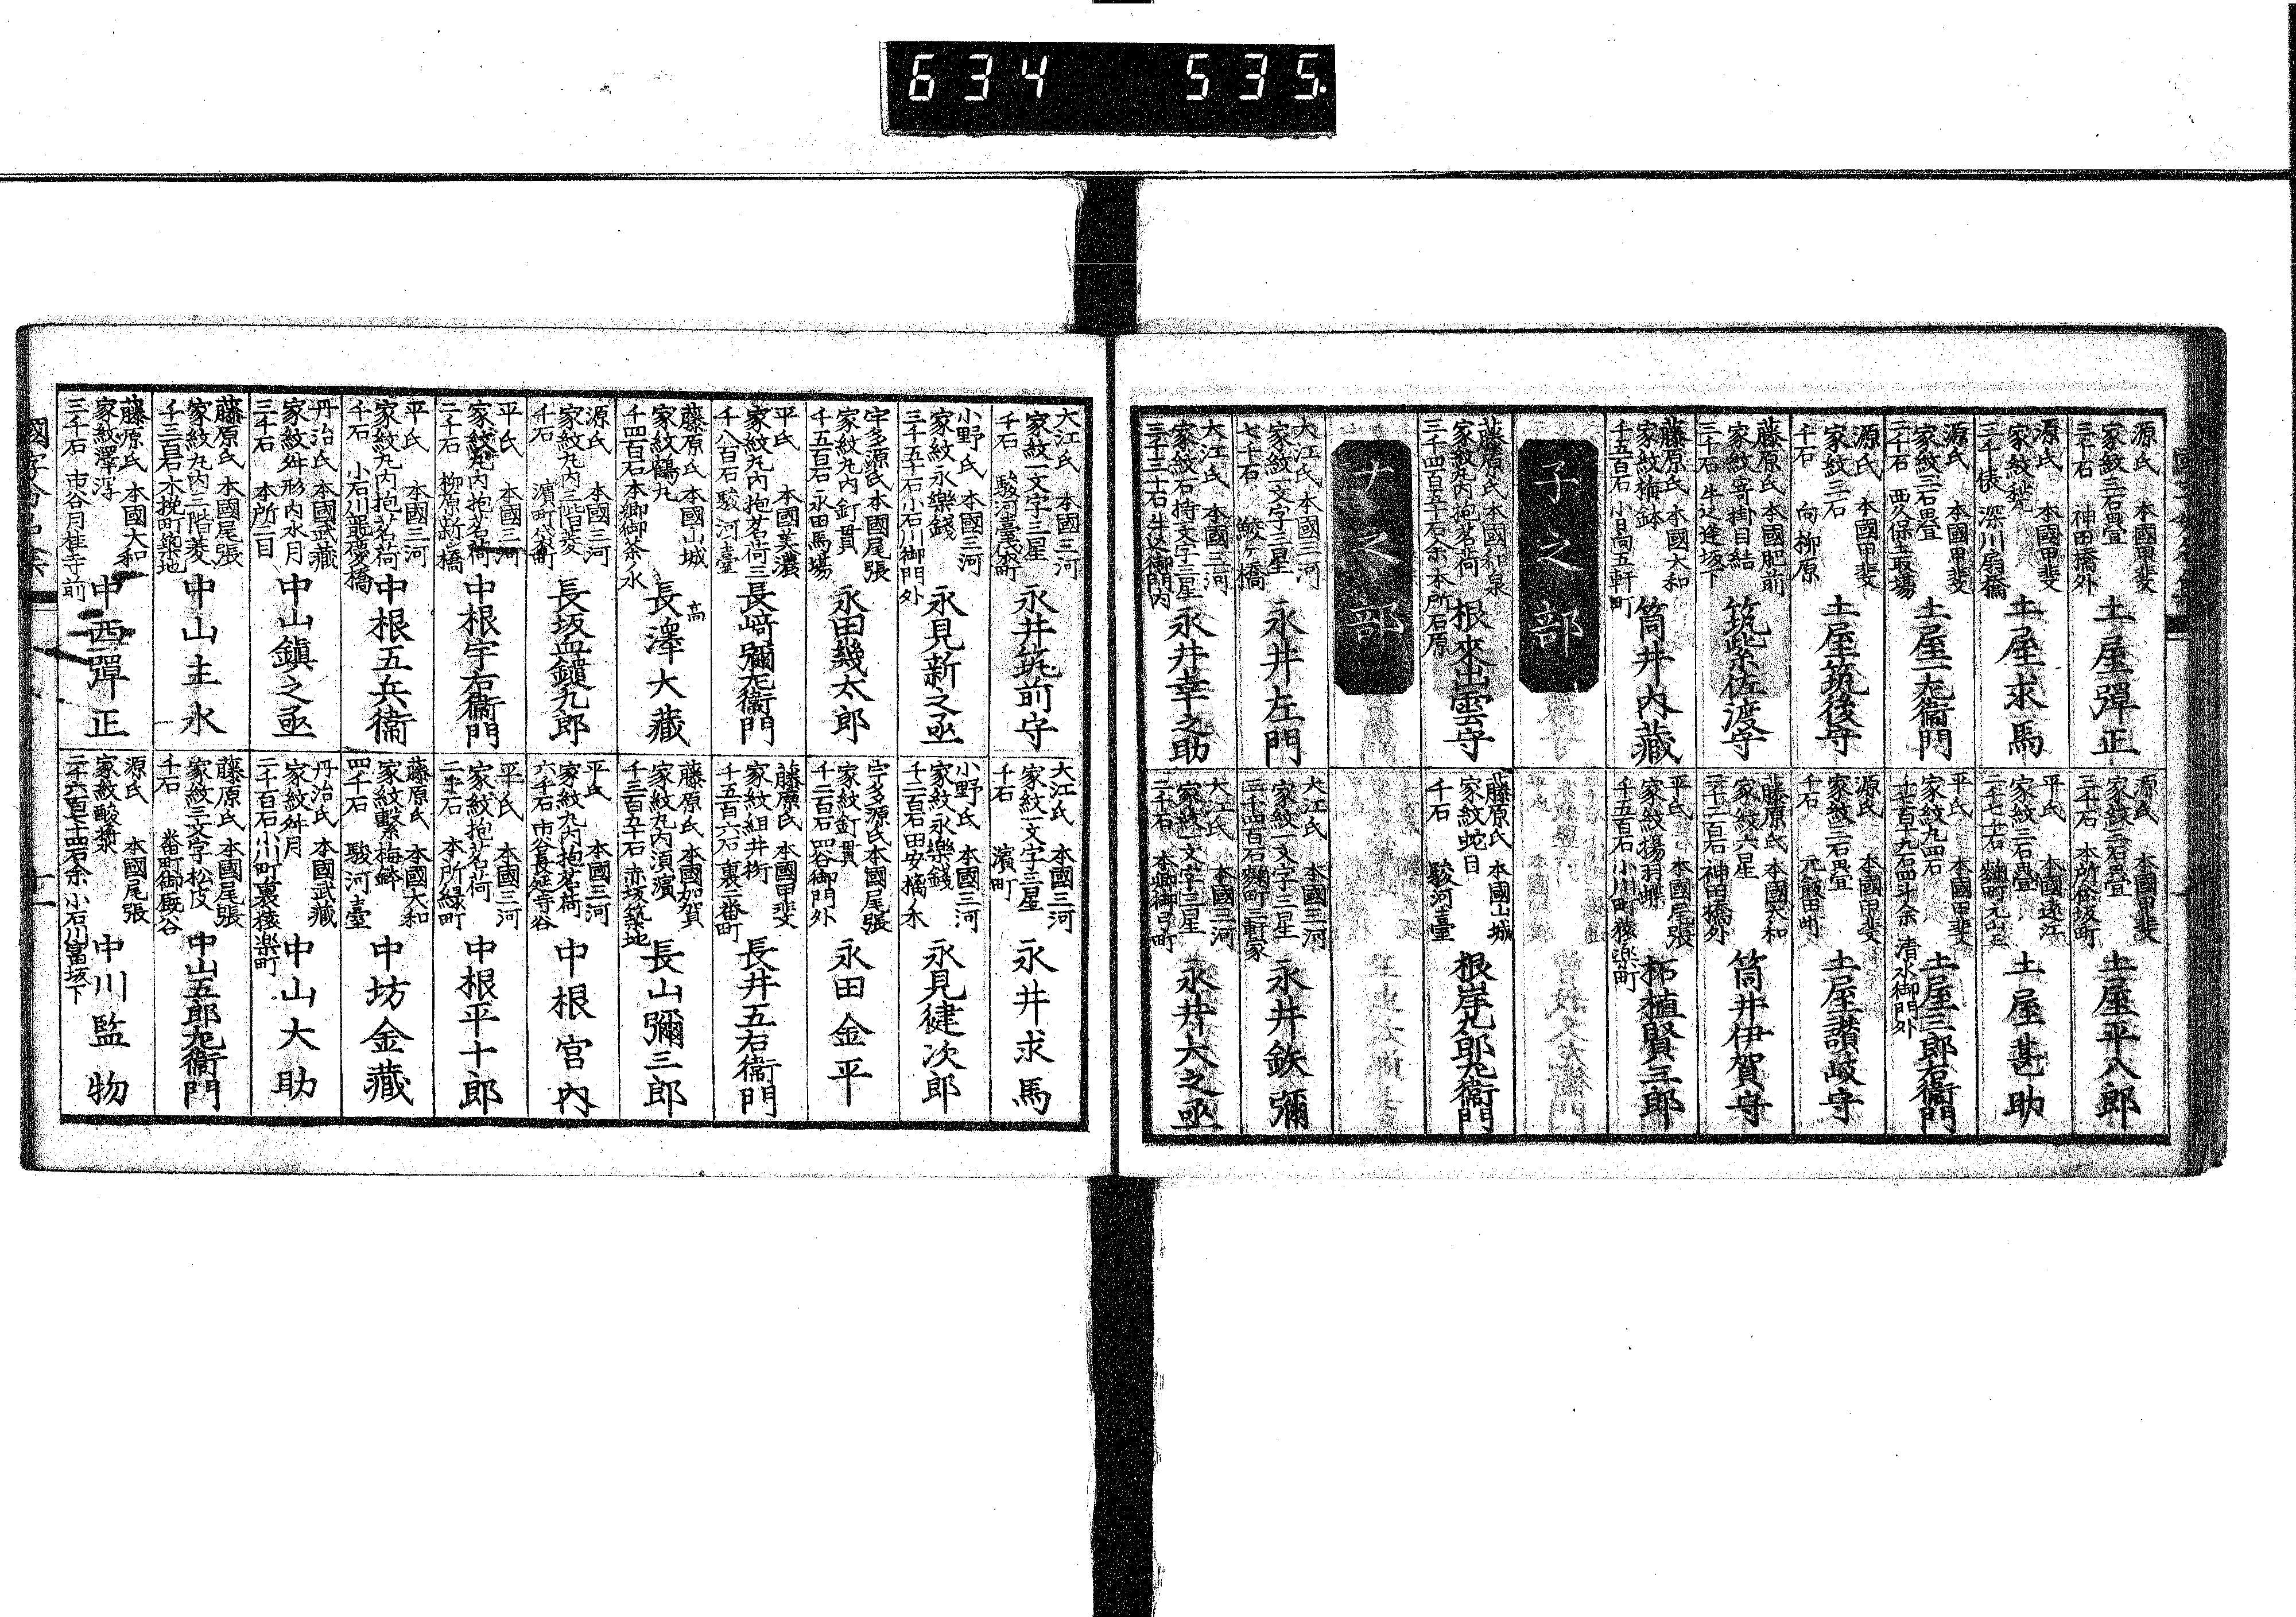 634 535.
源氏 本國甲斐
家紋三石疊
三千石 神田橋外
土屋彈正
源氏 本國甲斐
三千俵 深川扇橋
土屋求馬
源氏 本國甲斐
家紋三石疊
土屋一左衞門
源氏 本國甲斐
家紋三石
千石 向柳原
土屋筑後守
藤原氏 本國肥前
家紋寄掛目結
三千石 牛込逢坂下
筑紫佐渡守
藤原氏 本國大和
家紋梅鉢
千五百石 小日向五軒町
筒井内藏
子之部
藤原氏 本國和泉
家紋丸内抱茗荷
三千四百五十石余 本所石原
根來出雲守
ナ之部
大江氏 本國三河
家紋一文字三星
七千石 鮫ヶ橋
永井左門
大江氏 本國三河
三千三十石 牛込御門内
永井幸之助
源氏 本國甲斐
家紋三石疊
土屋平八郎
平氏 本國遠江
家紋三石疊
土屋甚助
平氏 本國甲斐
家紋丸四石
清水御門外
土屋三郎右衞門
源氏 本國甲斐
家紋三石疊
千石 元飯田町
土屋讃岐守
藤原氏 本國大和
家紋六星
神田橋外
筒井伊賀守
平氏 本國尾張
家紋揚羽蝶
千五百石 小川町猿樂町
柘植賢三郎
藤原氏 本國山城
家紋蛇目
千石 駿河臺
根岸九郎左衞門
大江氏 本國三河
家紋一文字三星
三千四百石 麹町三軒家
永井鉄彌
大江氏 本國三河
家紋一文字三星
三千石 本郷御弓町
永井大之丞
大江氏 本國三河
家紋一文字三星
千石 駿河臺袋町
永井筑前守
小野氏 本國三河
家紋永樂錢
三千五十石 小石川御門外
永見新之丞
宇多源氏 本國尾張
家紋丸内釘貫
千五百石 永田馬場
永田幾太郎
平氏 本國美濃
家紋丸内抱茗荷三
千八百石 駿河臺
長﨑彌左衞門
藤原氏 本國山城
家紋鶴丸
千四百石 本郷御茶ノ水
高
長澤大藏
源氏 本國三河
家紋丸内三階菱
千石 濱町
長坂血鑓九郎
平氏 本國三河
家紋丸内抱茗荷
二千石 柳原新シ橋
中根宇右衞門
平氏 本國三河
家紋丸内抱茗荷
千石 小石川
中根五兵衞
丹治氏 本國武藏
家紋舛形内水月
三千石 本所二目
中山鎭之丞
藤原氏 本國尾張
家紋丸内三階菱
木挽町築地
中山主水
藤原氏 本國大和
家紋澤瀉
三千石 市谷月桂寺前
中西彈正
大江氏 本國三河
家紋一文字三星
千石 濱町
永井求馬
小野氏 本國三河
家紋永樂錢
千二百石 田安
永見健次郎
宇多源氏 本國尾張
家紋釘貫
千二百石 四谷御門外
永田金平
藤原氏 本國甲斐
家紋組井桁
千五百六石 裏二番町
長井五右衞門
藤原氏 本國加賀
千三百九十石 赤坂築地
長山彌三郎
平氏 本國三河
家紋丸内抱茗荷
六千石 市谷長延寺谷
中根宮内
平氏 本國三河
家紋抱茗荷
二千石 本所緑町
中根平十郎
藤原氏 本國大和
家紋繋梅鉢
四千石 駿河臺
中坊金藏
丹治氏 本國武藏
家紋舛月
二千百石 小川町裏猿楽町
中山大助
藤原氏 本國尾張
家紋三文字松皮
千石 番町御厩谷
中山五郎左衞門
源氏 本國尾張
家紋酸漿
二千六百七十四石余 小石川富坂下
中川監物